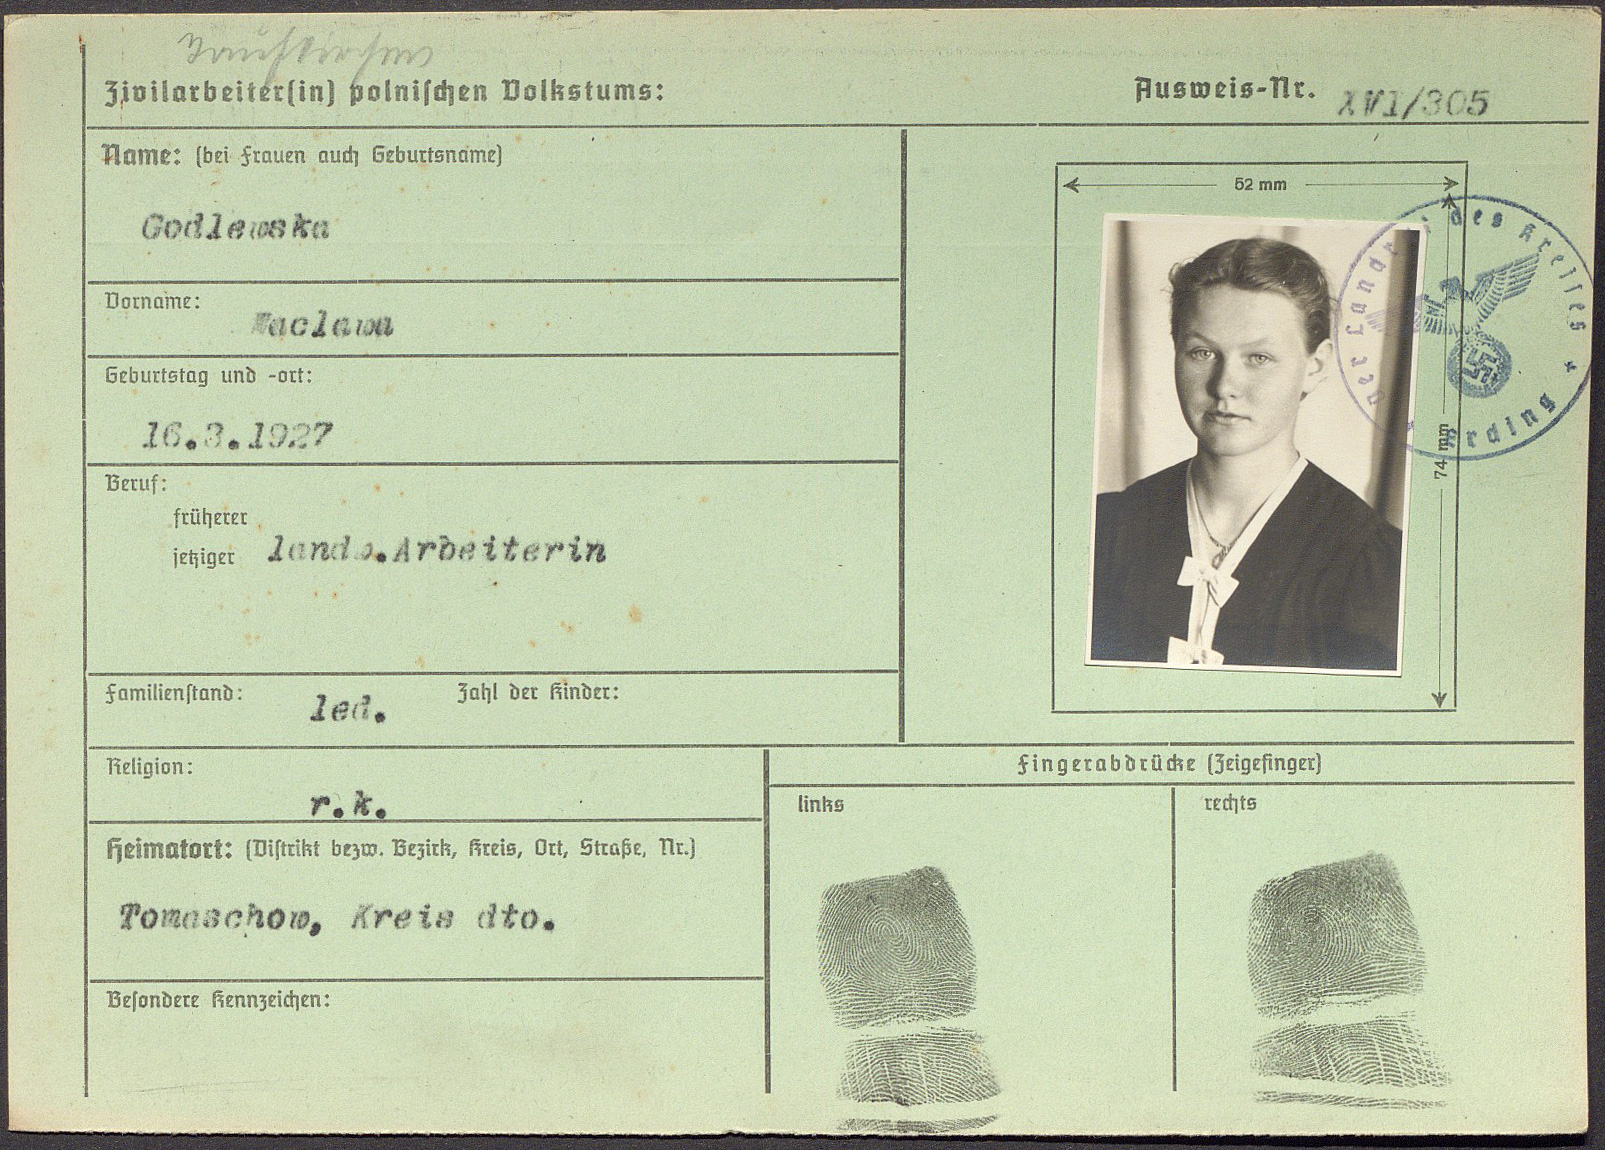 Taufkirchen
Zivilarbeiter(in) polnischen Volkstums:
Ausweis-Nr. XVI/305
Name: (bei Frauen auch Geburtsname)
Godlewska
Vorname:
Waclawa
Geburtstag und -ort:
16.3.1927
Beruf:
früherer
jetziger landw.Arbeiterin
Familienstand: led. Zahl der Kinder:
Religion:
r.k.
Heimatort: (Distrikt bezw. Bezirk, Kreis, Ort, Straße, Nr.)
Tomaschow, Kreis dto.
Besondere Kennzeichen:
52 mm
74 mm
Der Landrat des Kreises
Erding
Fingerabdrücke (Zeigefinger)
links
rechts